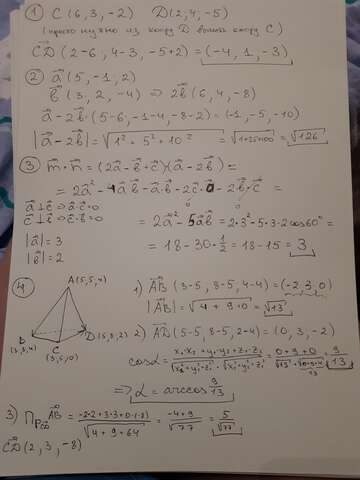 ① C(6, 3, -2) D(2, 4, -5)
(просто нужно из коорд D вычесть коорд C)
CD (2-6, 4-3, -5+2) = (-4, 1, -3)
② a(5, -1, 2)
b(3, 2, -4) ⇒ 2b(6, 4, -8)
a - 2b (5-6, -1-4, -8-2) = (-1, -5, -10)
|a - 2b| = √1² + 5² + 10² = √1+25+100 = √126
③ m · n = (2a - b + c)(a - 2b) =
= 2a² - 4ab - ab - 2c·a - 2b·c =
a⊥c ⇒ a·c=0
c⊥b ⇒ c·b=0
0 0
= 2a² - 5ab = 2·3² - 5·3·2cos60° =
|a| = 3
|b| = 2
= 18 - 30·1/2 = 18 - 15 = 3
④ A(5,5,4)
B (3,8,4)
C (3,5,0)
D(5,8,2)
1) AB (3-5, 8-5, 4-4) = (-2, 3, 0)
|AB| = √4 + 9 + 0 = √13
2) AD (5-5, 8-5, 2-4) = (0, 3, -2)
cosα = x₁·x₂ + y₁·y₂ + z₁·z₂ / √x₁²+y₁²+z₁² · √x₂²+y₂²+z₂² = 0+9+0 / √13 · √0+9+4 = 9/13
13
⇒ α = arccos 9/13
3) Пр CD AB = -2·2+3·3+0·(-8) / √4+9+64 = -4+9 / √77 = 5/√77
CD (2, 3, -8)